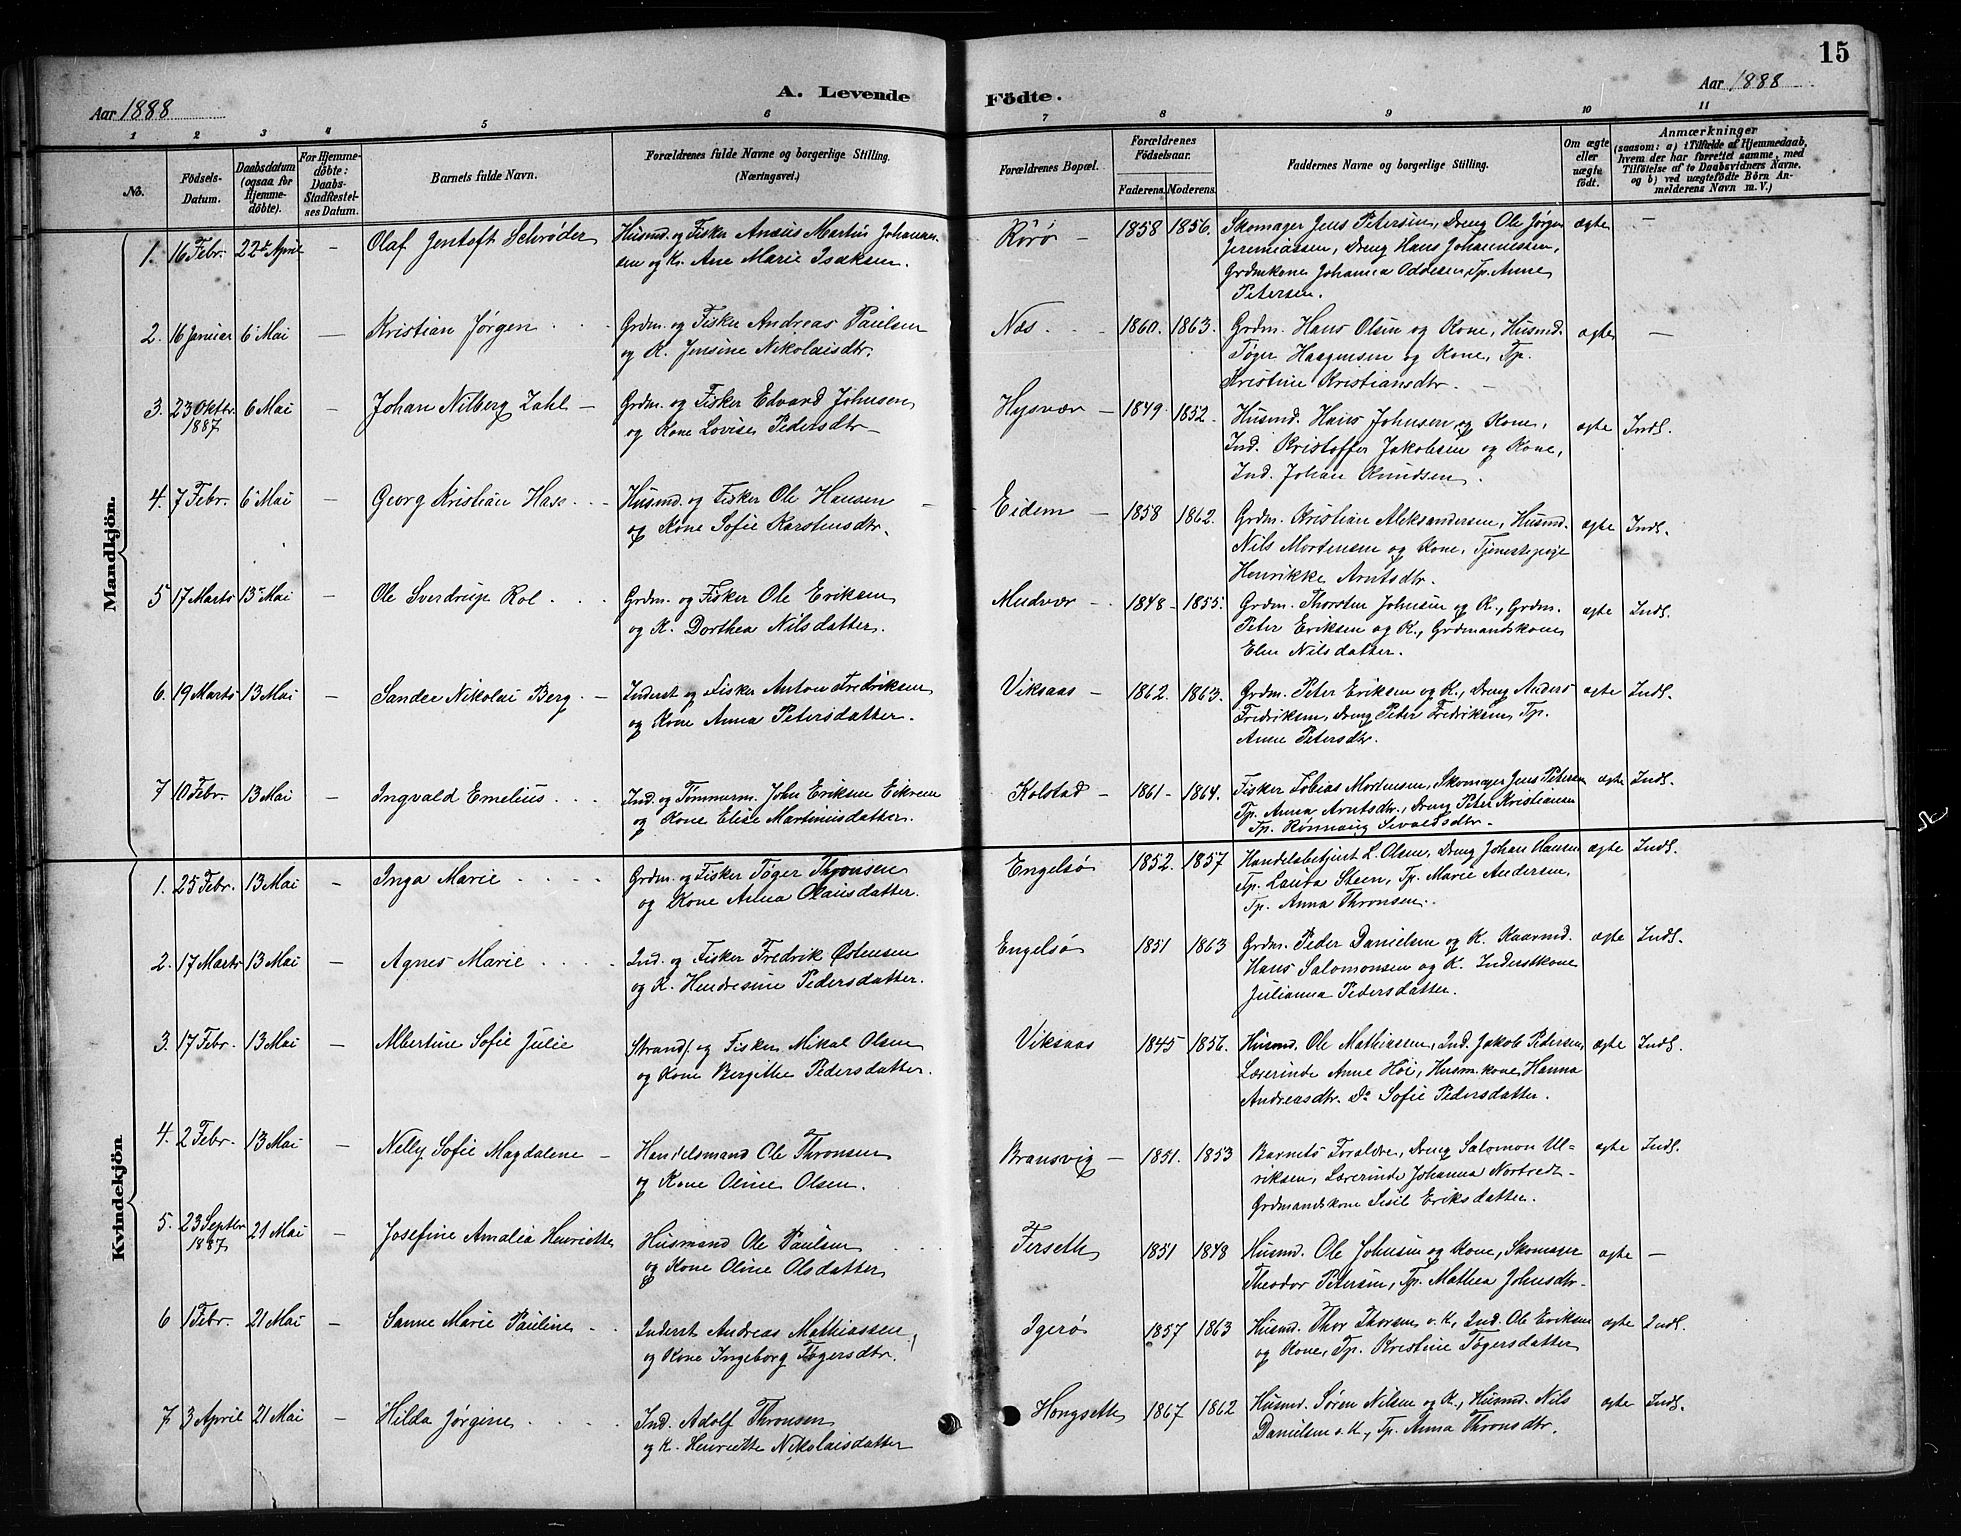 15
Aar 1888
A. Levende Födte.
Aar 1888
1 2 3 4 5 6 7 8 9 10 11
No.
Födsels-Datum.
Daabsdatum (ogsaa for Hjemme-döbte).
For Hjemme-döbte: Daabs-Stadfæstel-ses Datum.
Barnets fulde Navn.
Forældrenes fulde Navne og borgerlige Stilling.
(Næringsvei.)
Forældrenes Bopæl.
Forældrenes Födselsaar.
Faderens. Moderens.
Faddernes Navne og borgerlige Stilling.
Om ægte eller uægte födt.
Anmærkninger
(saasom: a) i Tilfælde af Hjemmedaab, hvem der har forrettet samme, med Tilföielse af to Daabsvidners Navne. og b) ved uægtefödte Börn An-melderens Navn m. V.)
Mandkjön.
1. 16 Febr. 22de April — Olaf Jentoft Schrøder Husmd. og Fisker Anæus Martin Johannes- Rørø — 1858 1856. Skomager Jens Petersen, Dreng Ole Jørgen ægte —
sen og K. Ane Marie Isaksen. Jeremiassen, Dreng Hans Johannessen,
Grdmkone Johanna Oddesen, Tp. Anne
Petersen.
2. 16 Januar 6 Mai — Kristian Jørgen Grdm. og Fisker Andreas Paulsen Næs 1860. 1863. Grdm. Hans Olsen og Kone, Husmd. ægte —
og K. Jensine Nikolaisdtr. Tøger Haagensen og Kone, Tp.
Kristine Kristiansdtr.
3. 23 Oktbr. 1887 6 Mai — Johan Nilberg Zahl — Grdm. og Fisker Edvard Johnsen Hysvær — 1849 1852. Husmd. Hans Johnsen og Kone, ægte Indl.
og Kone Lovise Pedersdtr — Ind. Kristoffer Jakobsen og Kone,
Ind. Johan Knudsen.
4. 7 Febr. 6 Mai — Georg Kristian Hass Husmd. og Fisker Ole Hansen Eidem — 1858 1862. Grdm. Kristian Aleksandersen, Husmd. ægte Indl.
og Kone Sofie Karstensdtr. Nils Mortensen og Kone, Tjenestepige
Henrikke Arntsdtr.
5 17 Marts 13 Mai — Ole Sverdrup Rol Grdm. og Fisker Ole Eriksen Mudvær — 1848 — 1855. Grdm. Thorsten Johnsen og K., Grdm. ægte Indl.
og K. Dorthea Nilsdatter. Peter Eriksen og K., Grdmandskone
Elen Nilsdatter.
6. 19 Marts 13 Mai — Sander Nikolai Berg — Inderst og Fisker Anton Fredriksen Viksaas — 1862. 1863. Grdm. Peter Eriksen og K., Dreng Anders ægte Indl.
og Kone Anna Petersdatter. Fredriksen, Dreng Peter Fredriksen, Tp.
Anne Petersdtr.
7 10 Febr. 13 Mai — Ingvald Emelius Ind. og Tømmerm. John Eriksen Eikrem Kolstad — 1861 — 1864. Fisker Tobias Mortensen, Skomager Jens Petersen ægte Indl.
og Kone Elise Martinusdatter. Tp. Anna Arntsdtr., Dreng Peter Kristiansen
Tp. Rønnaug Sivaldsdtr.
Kvindekjön.
1. 25 Febr. 13 Mai — Inga Marie Grdm. og Fisker Tøger Thronsen Engelsø 1852. 1857 Handelsbetjent L. Olsen, Dreng Johan Hansen ægte Indl.
og Kone Anna Olaisdatter. Tp. Laura Steen, Tp. Marie Andersen,
Tp. Anna Thronsen.
2. 17 Marts 13 Mai — Agnes Marie Ind. og Fisker Fredrik Østensen Engelsø 1851 1863 Grdm. Peder Danielsen og K. Kaarmd. ægte Indl.
og K. Hendresine Pedersdatter. Hans Salomonsen og K. Inderstkone
Julianna Pedersdatter.
3. 17 Febr. 13 Mai — Albertine Sofie Julie Strands. og Fisker Mikal Olsen Viksaas 1845 1856. Husmd. Ole Mathiassen, Ind. Jakob Pedersen, ægte Indl.
og Kone Bergitte Pedersdatter. Lærerinde Anne Høi, Husm.kone Hanna
Andreasdtr. Do Sofie Pedersdatter.
4. 2 Febr. 13 Mai — Nelly Sofie Magdalene — Handelsmand Ole Thronsen Bransvig — 1851. 1853 Barnets Forældre, Dreng Salomon Ul- ægte Indl.
og Kone Oline Olsen. riksen, Lærerinde Johanna Nortredt
Grdmandskone Sisil Eriksdatter.
5. 23 Septbr 1887 21 Mai — Josefine Amalia Henriette Husmand Ole Paulsen Ferseth 1851 1848 Husmd. Ole Johnsen og Kone, Skomager ægte —
og Kone Oline Olsdatter Theodor Petersen, Tp. Mathea Johnsdtr.
6 1 Febr. 21 Mai — Sanne Marie Pauline Inderst Andreas Mathiassen Igerø 1857 1863 Husmd. Thor Thorsen o. K., Ind. Ole Eriksen ægte Indl.
og Kone Ingeborg Tøgersdtr. og Kone, Tp. Kristine Tøgersdatter
7 3 April 21 Mai — Hilda Jørgine Ind. Adolf Thronsen Hongseth 1867 1862 Husmd. Søren Nilsen og K., Husmd. Nils ægte Indl.
og K. Henriette Nikolaisdatter Danielsen o. K., Tp. Anna Thronsdtr.